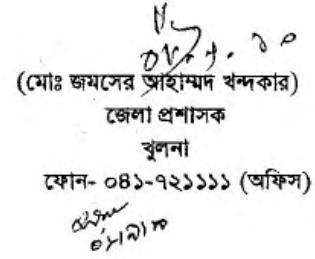 (মোঃ জমসের আহাম্মদ খন্দকার)
জেলা প্রশাসক
খুলনা
ফোন- ০৪১-৭২১১১১ (অফিস)